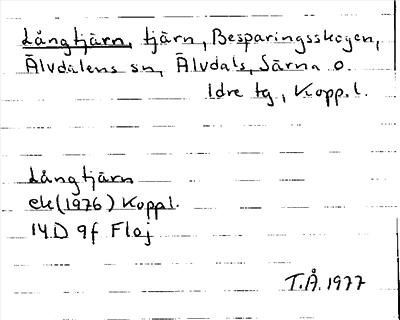 Långtjärn, tjärn, Besparingsskogen,
Älvdalens sn, Älvdals, Särna o.
Idre tg., Kopp.l.
Långtjärn
ek(1976) Koppl.
14D 9f Floj
T.Å. 1977